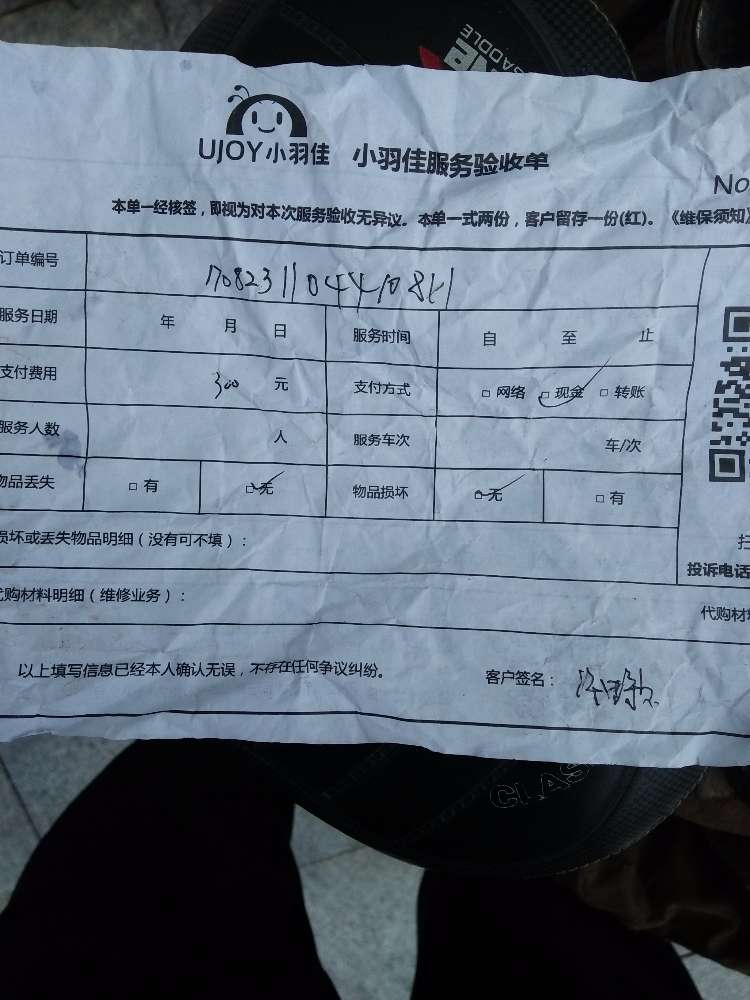 SADDLE
UJOY小羽佳 小羽佳服务验收单
No
本单一经核签，即视为对本次服务验收无异议。本单一式两份，客户留存一份(红)。《维保须知》
订单编号
服务日期 年 月 日 服务时间 自 至 止
支付费用 300 元 支付方式 □ 网络 □ 现金 □ 转账
服务人数 人 服务车次 车/次
物品丢失 □ 有 □ 无 物品损坏 □ 无 □ 有
损坏或丢失物品明细（没有可不填）：
投诉电话
代购材料明细（维修业务）： 代购材
以上填写信息已经本人确认无误，不存在任何争议纠纷。 客户签名：
CLAS